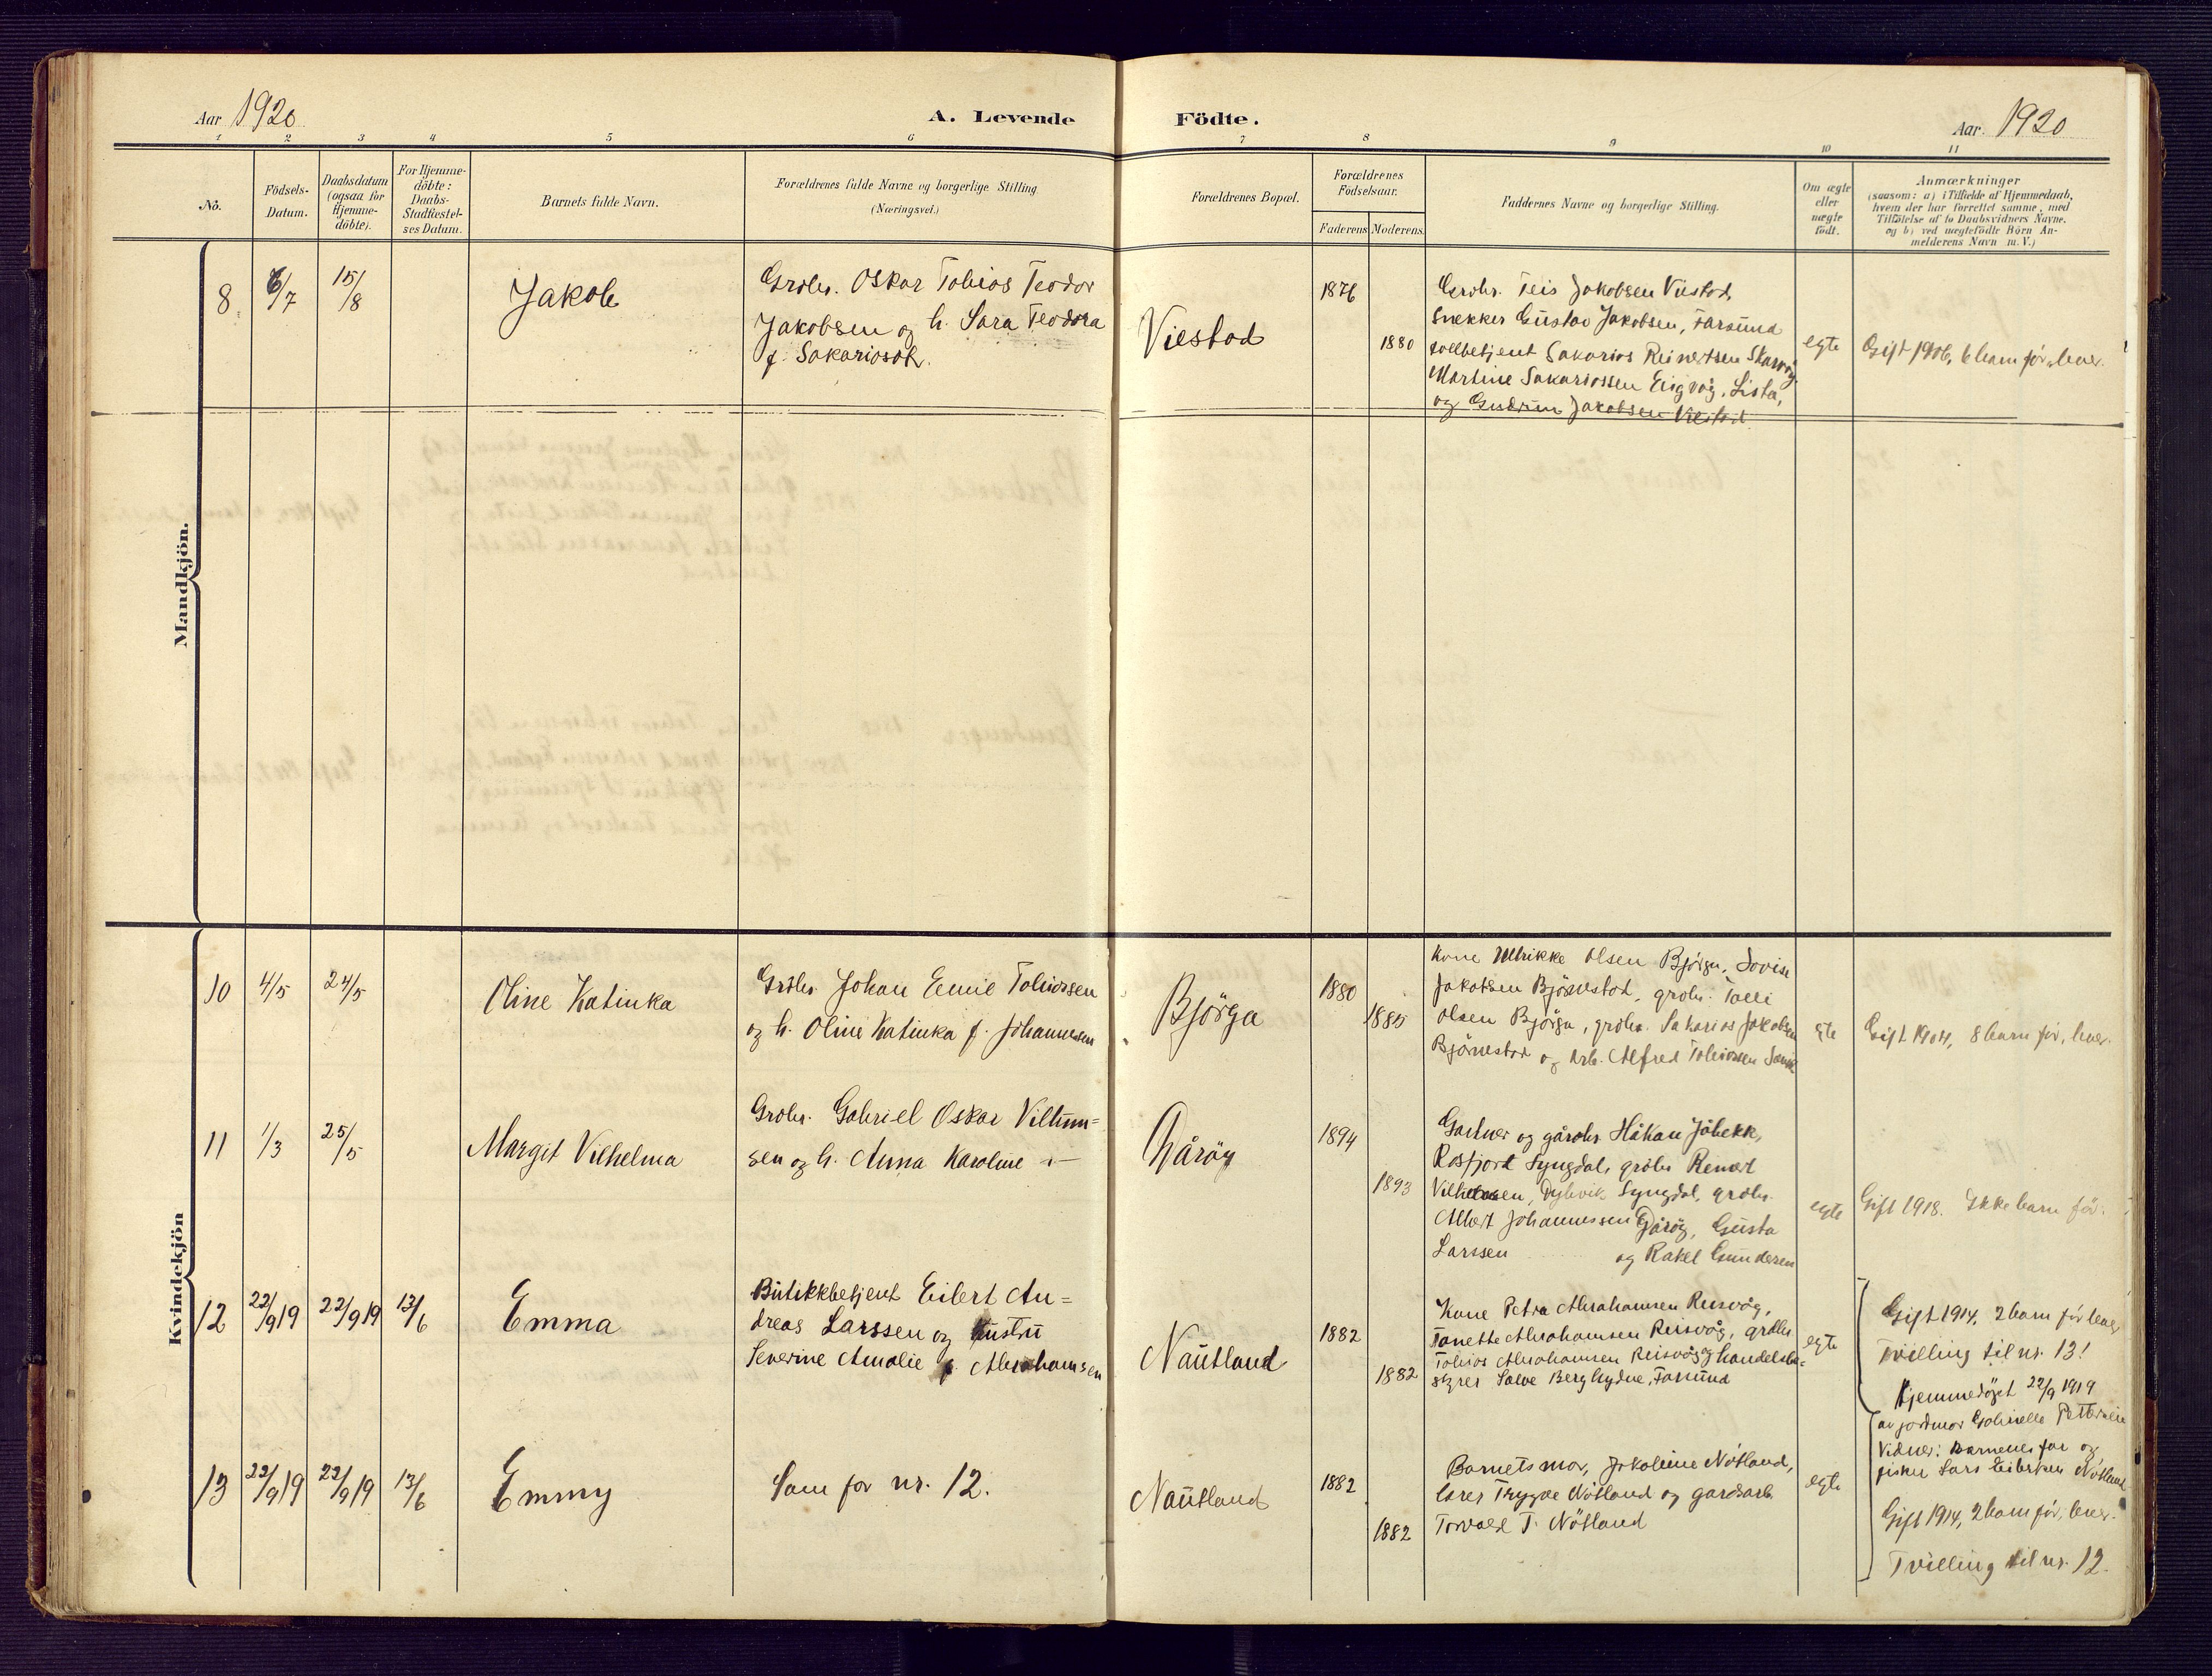 Aar 1920
A. Levende Födte.
Aar. 1920
1 2 3 4 5 6 7 8 9 10 11
No.
Födsels-
Datum.
Daabsdatum
(ogsaa for
Hjemme-
döbte).
For Hjemme-
döbte:
Daabs-
Stadfæstel-
ses Datum.
Barnets fulde Navn.
Forældrenes fulde Navne og borgerlige Stilling.
(Næringsvei.)
Forældrenes Bopæl.
Forældrenes
Födselsaar.
Faderens Moderens
Faddernes Navne og borgerlige Stilling.
Om ægte
eller
uægte
födt.
Anmærkninger
(saasom: a) i Tilfælde af Hjemmedaab,
hvem der har forrettet samme, med
Tilföielse af to Daabsvidners Navne.
og b) ved uægtefödte Börn An-
melderens Navn m. V.)
Mandkjön.
8
6/7
15/8
Jakob
Grdbr. Oskar Tobias Teodor
Jakobsen og h. Sara Teodora
f. Sakariasdt.
Viestad
1876
1880
Grdbr. Teis Jakobsen Viestad,
Snekker Gustav Jakobsen, Farsund
tollbetjent Sakarias Reinertsen Skarvøy
Martine Sakariassen Eigvåg, Lista,
og Gudrun Jakobsen Viestad
egte
Gift 1906, 6 barn før, lever.
Kvindekjön
10
4/5
24/5
Oline Katinka
Grdbr. Johan Emil Tobiassen
og h. Oline Katinka f. Johannessen
Björga
1880
1885
Kone Ulrikke Olsen Björga, Lovise
Jakobsen Björnestad, grdbr. Talli
Olsen Björga, grdbr. Sakarias Jakobsen
Björnestad og arb. Alfred Tobiassen
egte
Gift 1904, 8 barn før, lever.
11
1/3
25/5
Margit Vilhelma
Grdbr. Gabriel Oskar Viltum=
sen og h. Anna Karoline
Dårøy
1894
1893
Gartner og gårdbr Håkan Jåbekk,
Rosfjord Lyngdal, grdbr Reinert
Dybvik Lyngdal, grdbr.
Albert Johannessen Dårøy, Gusta
Larssen og Rakel Gundersen
egte
Gift 1918. Ikke barn før.
12
22/9 19
22/9 19
13/6
Emma
Butikkbetjent Eilert An=
dreas Larssen og hustru
Severine Amalie f. Abrahamsen
Nautland
1882
1882
Kone Petra Abrahamsen Reisvåg,
Tanette Abrahamsen Reisvåg, grdbr
Tobias Abrahamsen Reisvåg og handelsbe=
styrer Salve Berghydne, Farsund
egte
Gift 1914, 2 barn før lever
Tvilling til nr. 13!
Hjemmedøpt 22/9 1919
av jordmor Gabrielle Pettersen
Vidner: Barnenes far og
fisker Lars Eilertsen Nötland
13
22/9 19
22/9 19
13/6
Emmy
Som for nr. 12.
Nautland
1882
1882
Barnets mor, Jakobine Nötland,
lærer Trygve Nötland og gardsarb.
Torvald T. Nötland
egte
Gift 1914, 2 barn før, lever.
Tvilling til nr. 12.